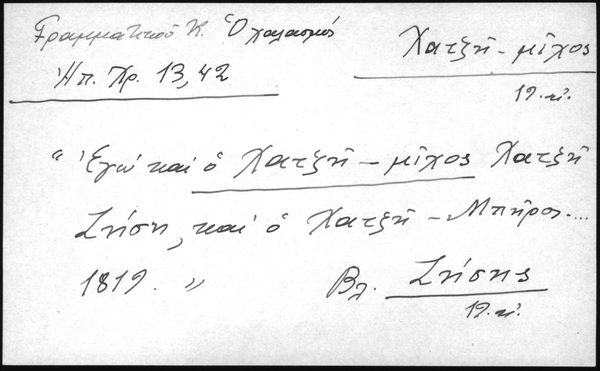 Γραμματικοῦ Κ. Ὁ χαλασμός
Ἠπ. Χρ. 13,42
Χατζῆ-μῖχος
19. αἰ.
" Ἐγώ καί ὁ Χατζῆ-μῖχος Χατζῆ
Ζήση, καί ὁ Χατζῆ-Μπῆρος....
1819. "
Βλ. Ζήσης
19. αἰ.